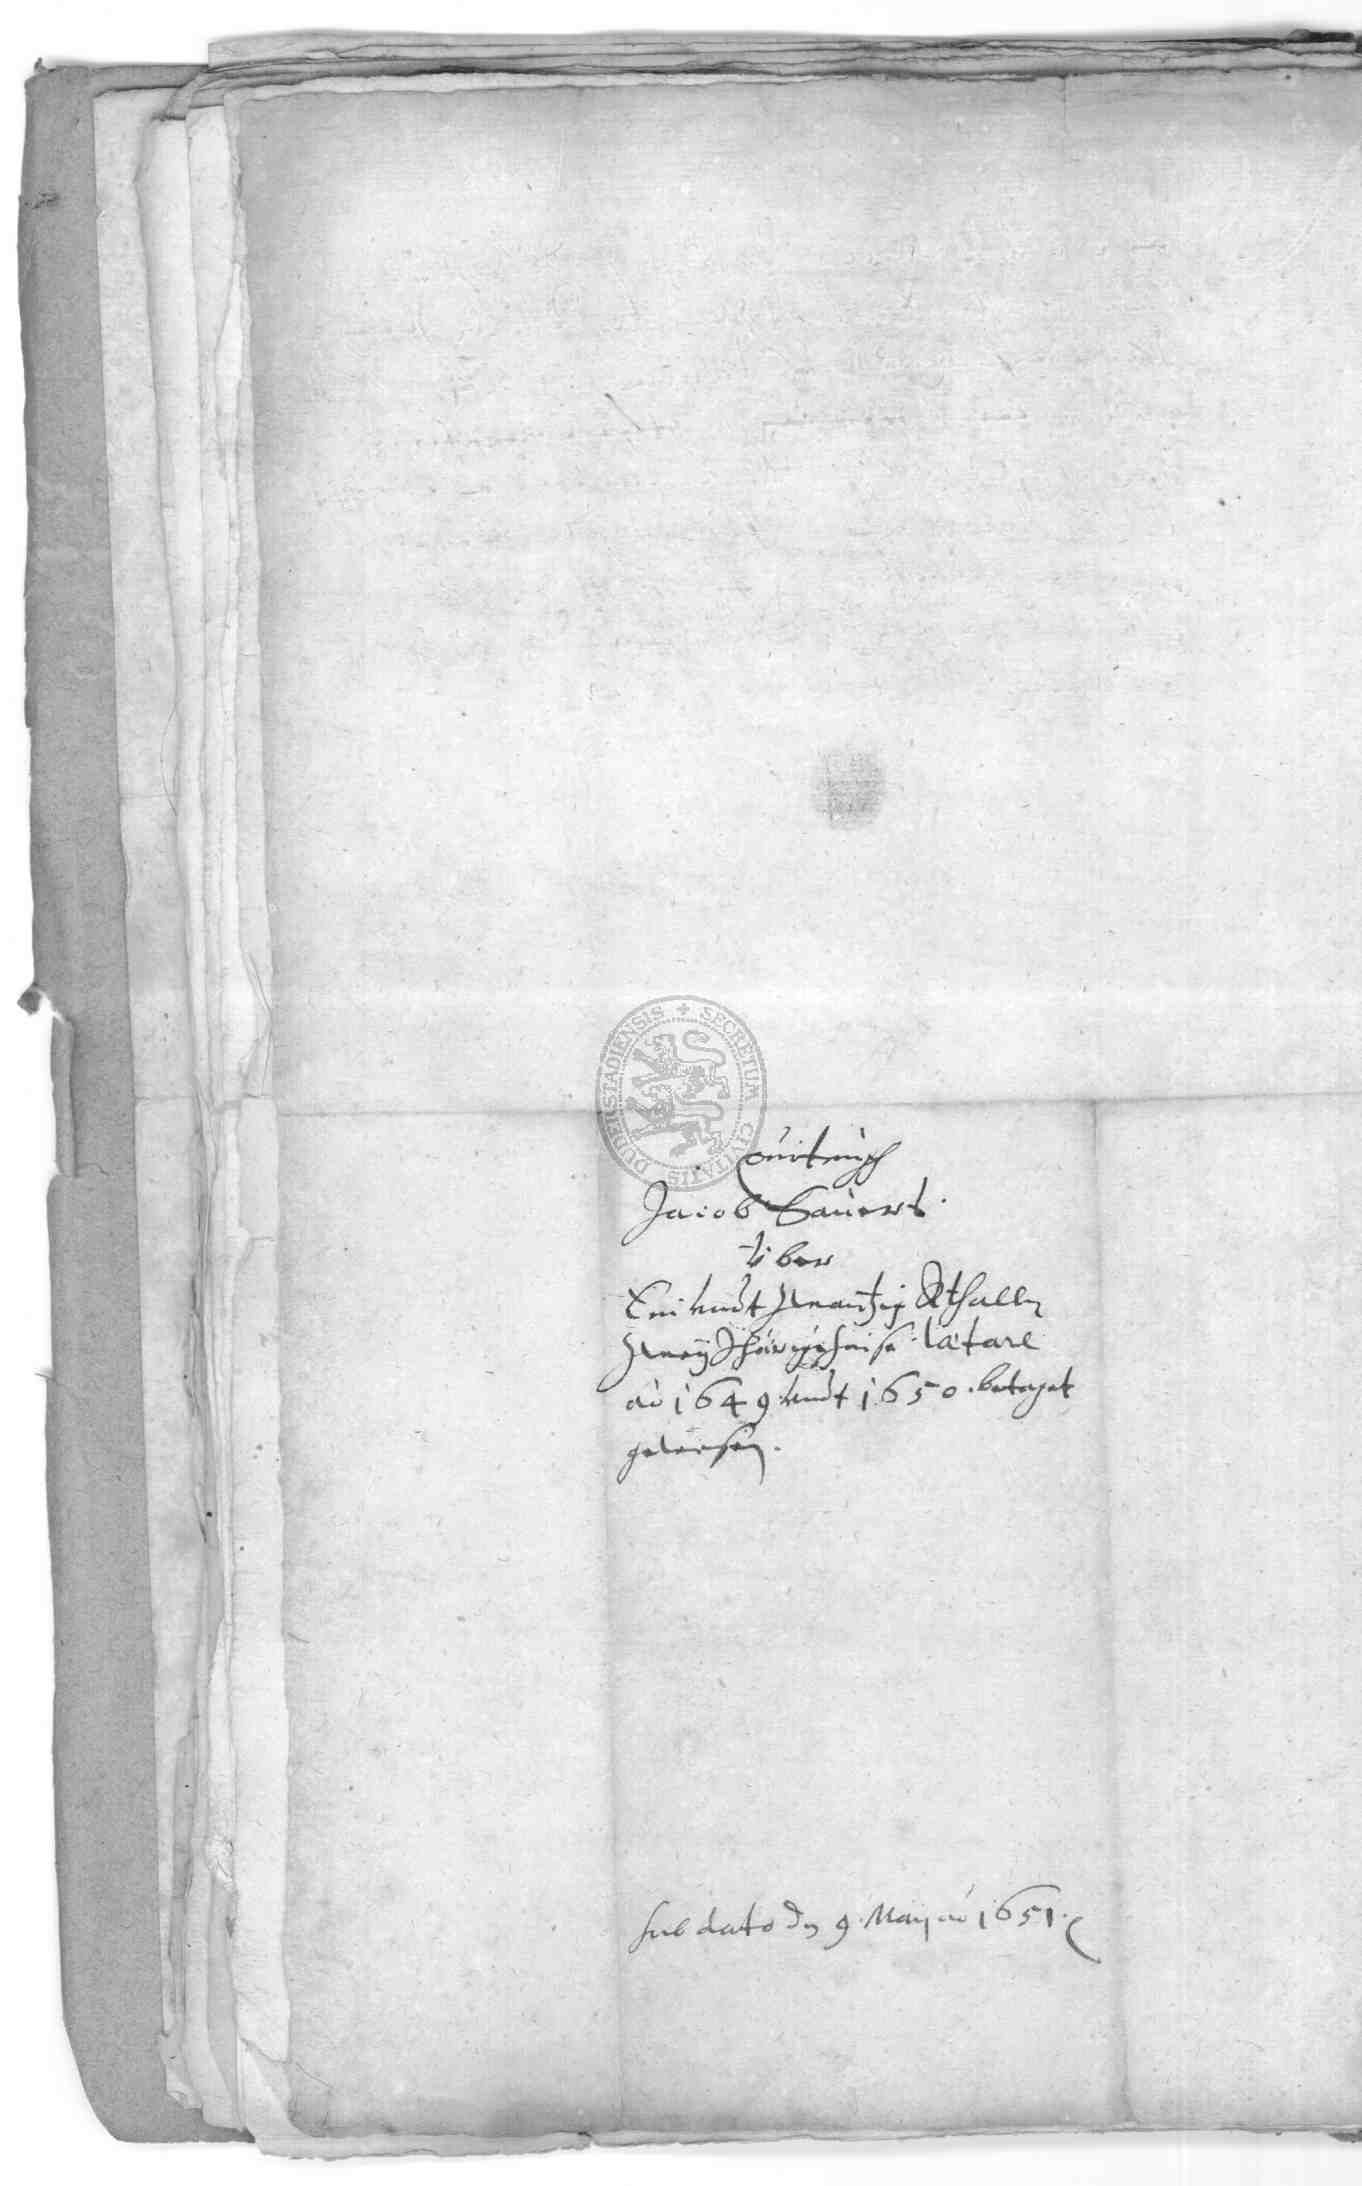 SECRETUM CIVITATIS DUDERSTADIENSIS
Quitung
Jacob Sauerts.
über
Ein undt zwantzig Rthallr
Zweyjhärige Laetare
aō 1649 undt 1650. betaget
gewesen.
sub dato dn 9. Maij aō 1651.